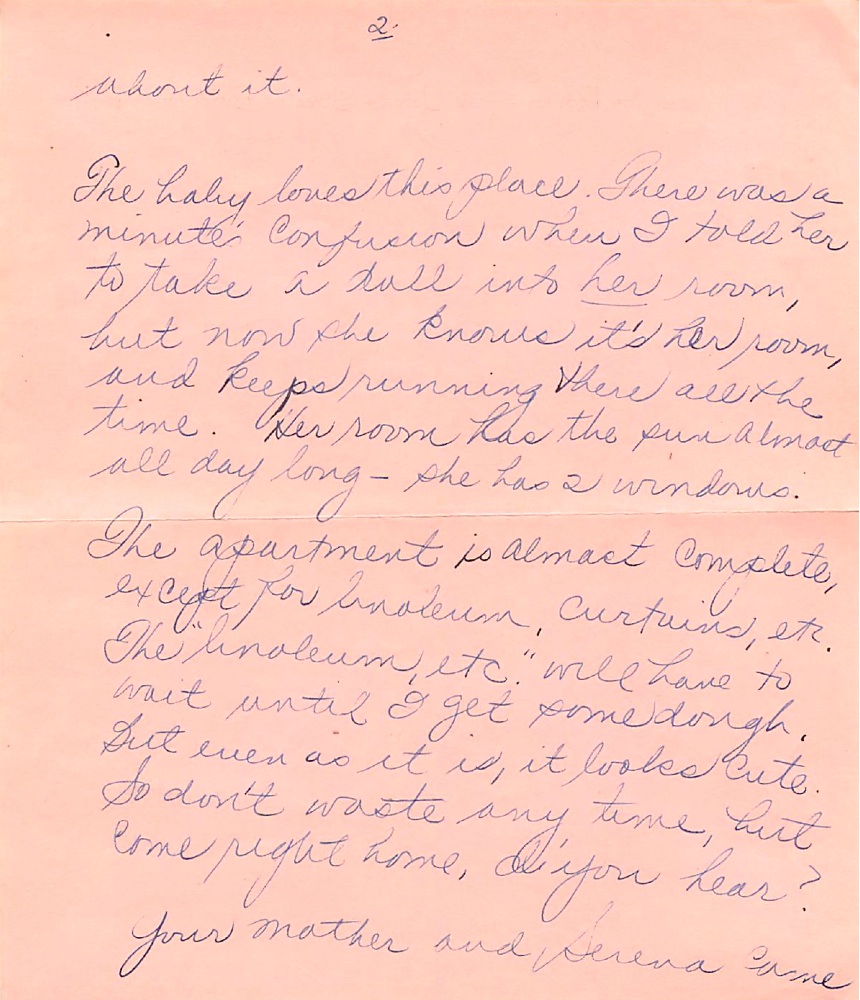 2.
about it.
The baby loves this place. There was a
minute's confusion when I told her
to take a doll into her room,
but now she knows it's her room,
and keeps running there all the
time. Her room has the sun almost
all day long - she has 2 windows.
The apartment is almost complete,
except for linoleum, curtains, etc.
The "linoleum, etc." will have to
wait until I get some dough.
But even as it is, it looks cute.
So don't waste any time, but
come right home, do you hear?
Your mother and Serena came